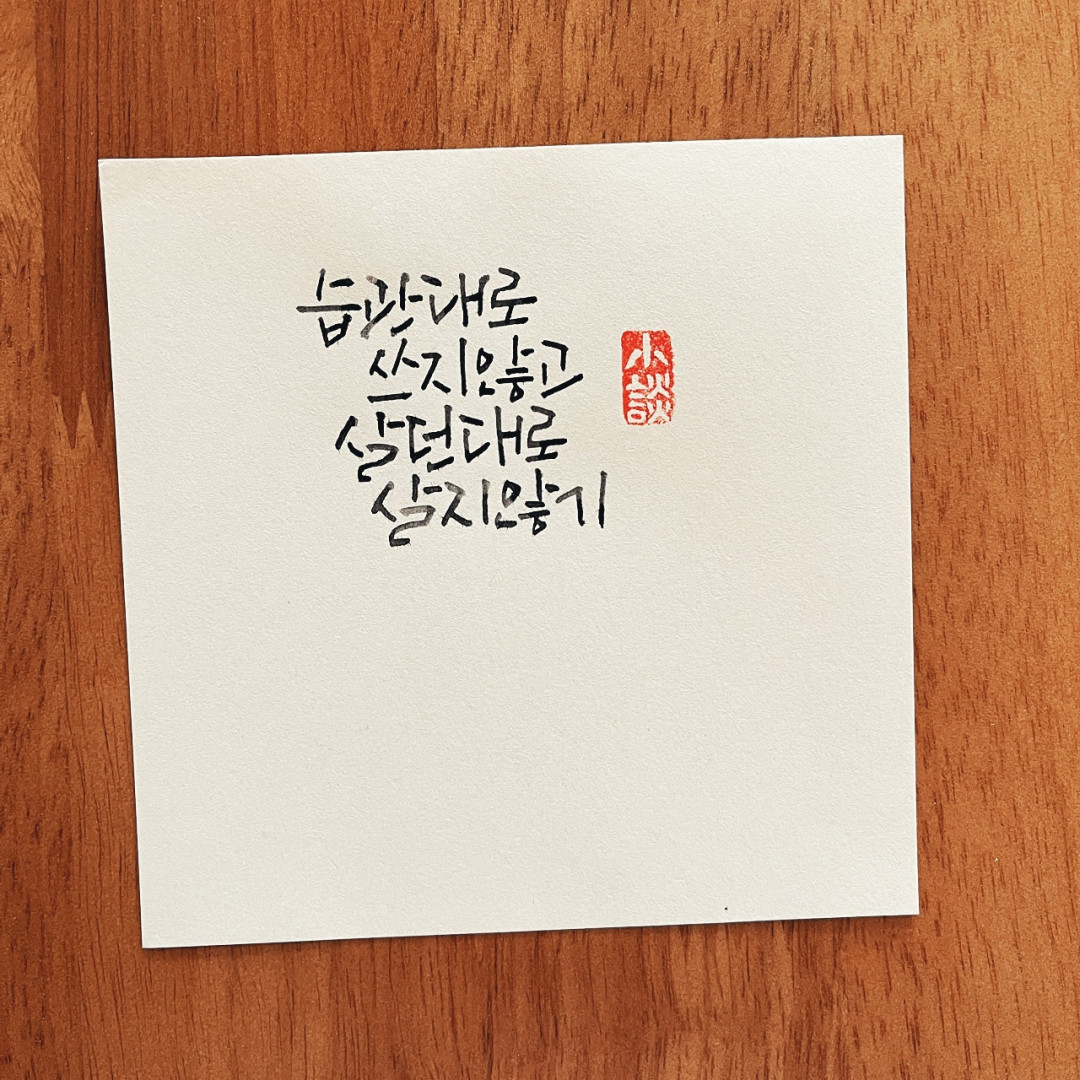 습관대로
쓰지않고
살던대로
살지않기
小談